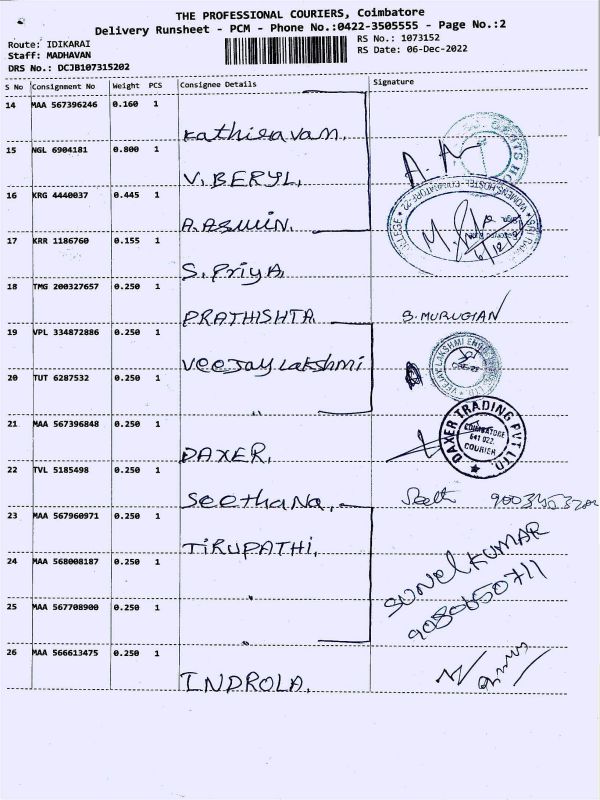 THE PROFESSIONAL COURIERS, Coimbatore
Delivery Runsheet - PCM - Phone No.:0422-3505555 - Page No.:2
Route: IDIKARAI
RS No.: 1073152
Staff: MADHAVAN
RS Date: 06-Dec-2022
DRS No.: DCJB107315202
S No Consignment No Weight PCS Consignee Details Signature
14 MAA 567396246 0.160 1
Kathiravan.
15 NGL 6904181 0.800 1
V. BERYL.
A.
16 KRG 4440037 0.445 1
A. Aswin.
17 KRR 1186760 0.155 1
S. Priya
18 TMG 200327657 0.250 1
PRATHISHTA S. MURUGIAN
19 VPL 334872886 0.250 1
Veejay Lakshmi
20 TUT 6287532 0.250 1
"
21 MAA 567396848 0.250 1
DAXER.
DAXER TRADING PVT LTD.
COIMBATORE
641 022.
COURIER
22 TVL 5185498 0.250 1
Seethana.
23 MAA 567960971 0.250 1
TIRUPATHI.
SUNEL KUMAR
9080650711
24 MAA 568008187 0.250 1
"
25 MAA 567708900 0.250 1
"
26 MAA 566613475 0.250 1
INDROLA.